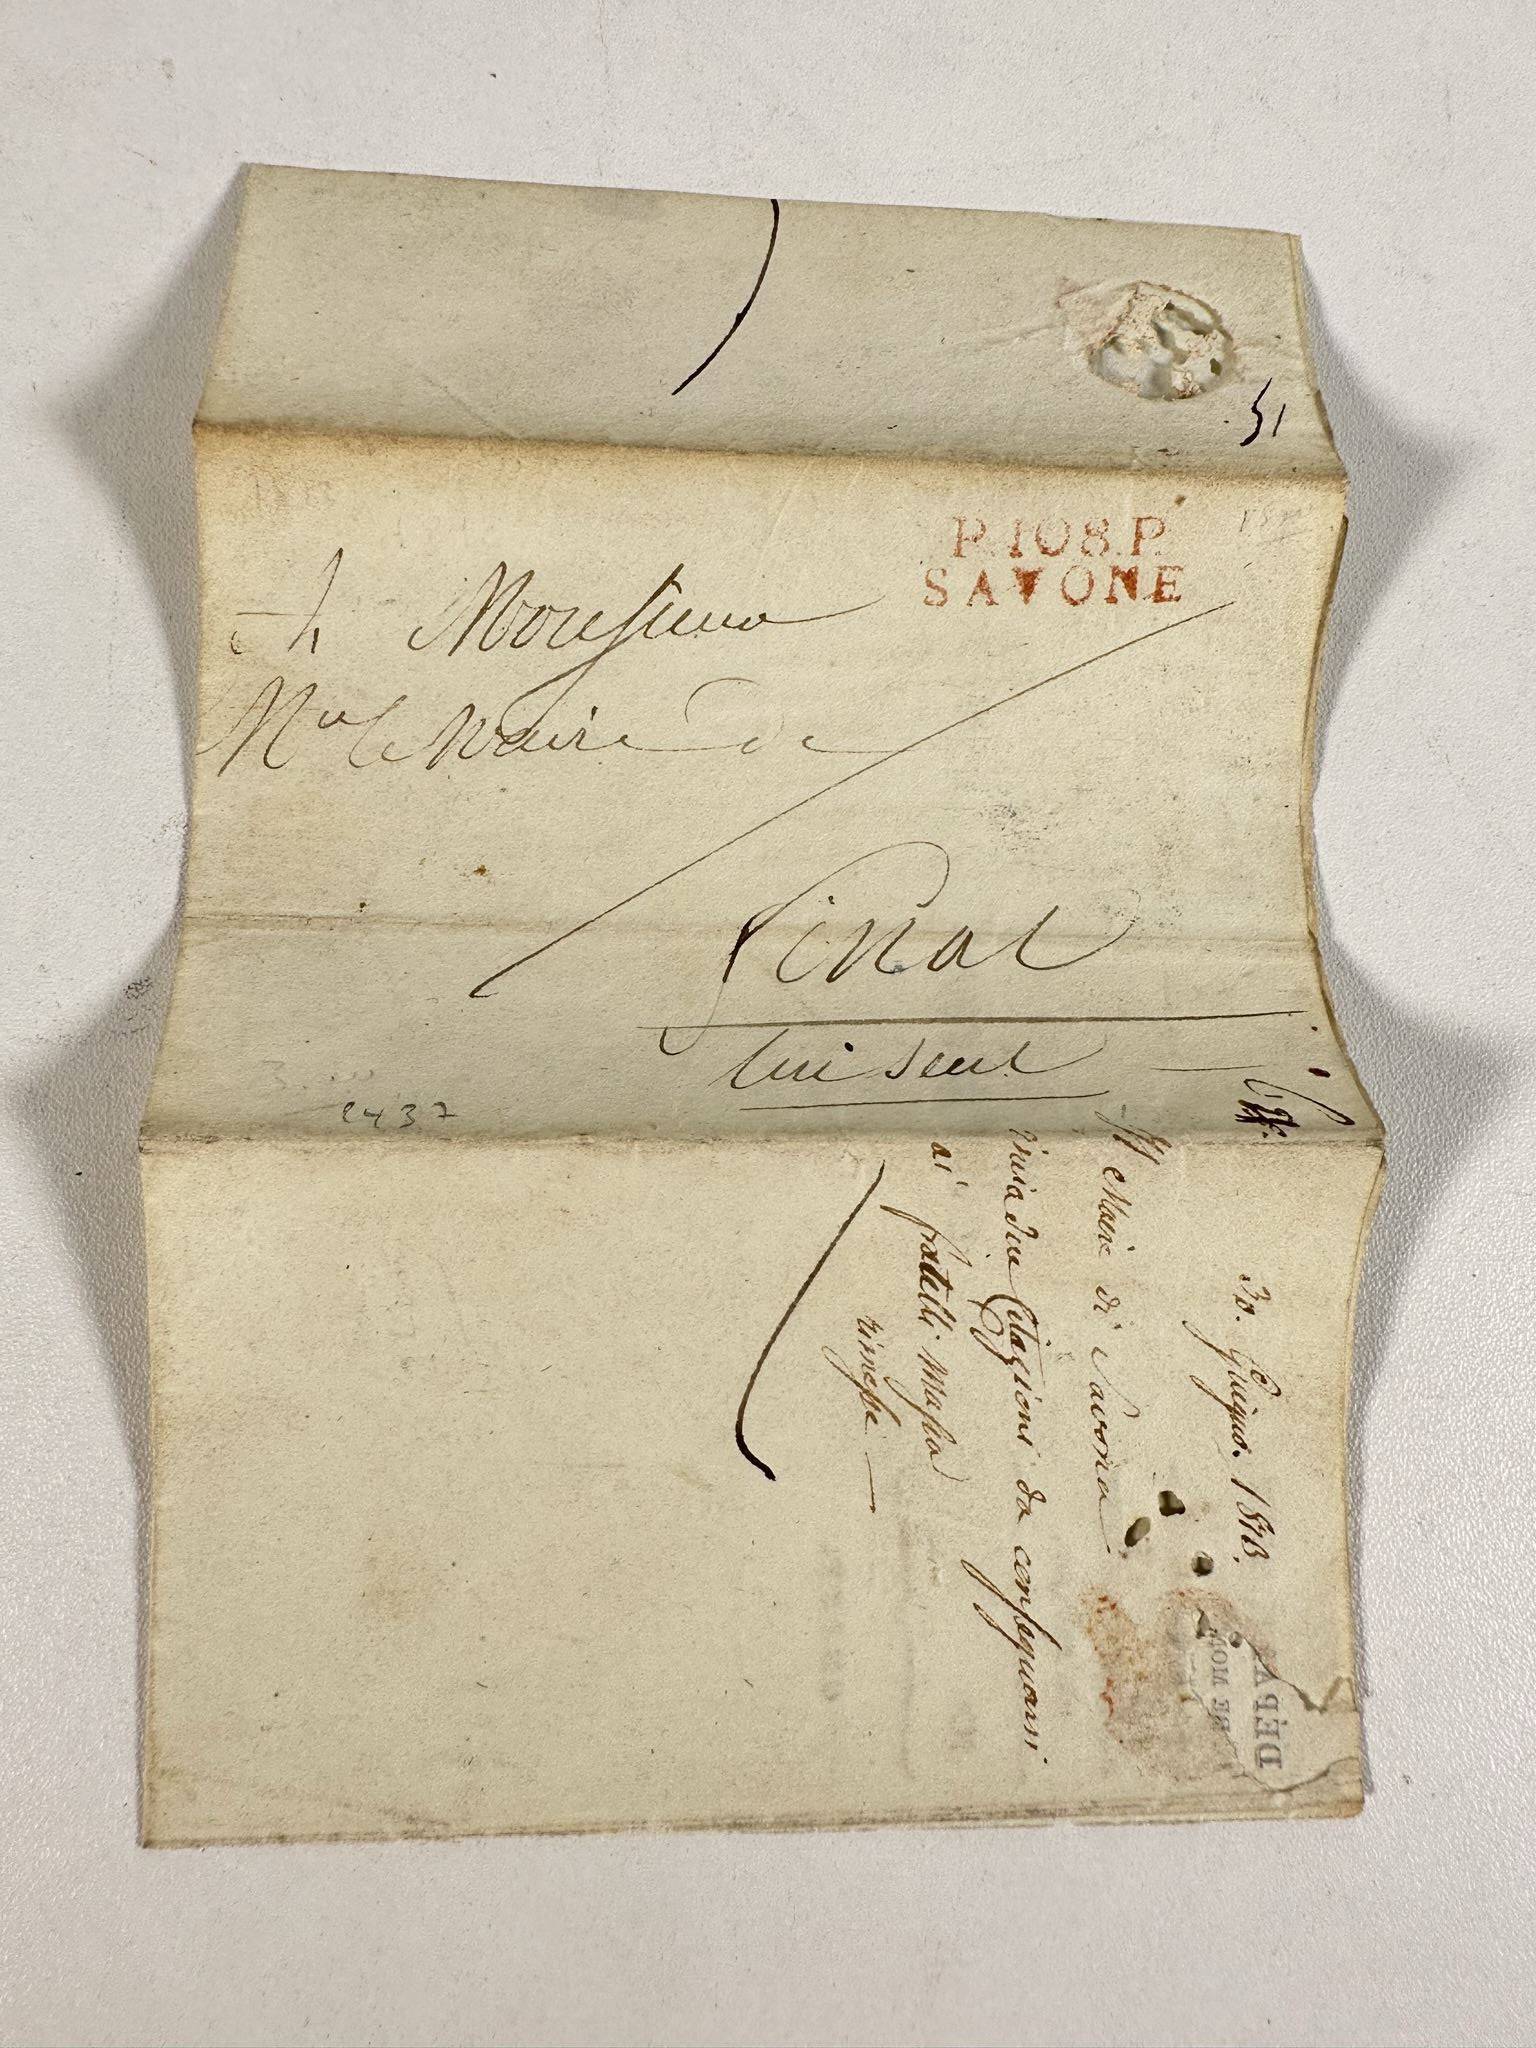 P. 108. P.
SAVONE
A Monsieur
Mr le Maire de
Final
lui seul
2437
30. Giugno. 1813.
Il Maire di Savona
invia due Citazioni da consegnarsi
ai fratelli Massa
rimesse —
DÉPA
DE MO
51